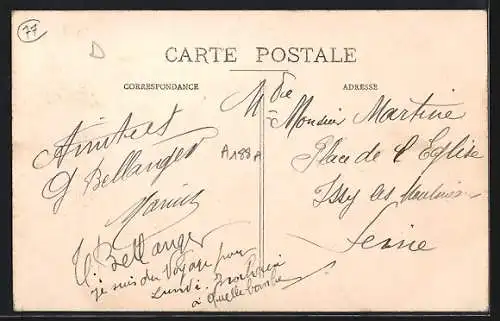 77
D
CARTE POSTALE
CORRESPONDANCE
ADRESSE
Amities
G Bellanger
A188A
H. Bellanger
je suis du Voyage pour
Lundi. Prochain
à quelle
M de
Monsieur Martine
Place de l'Eglise
Issy les Moulineaux
Seine